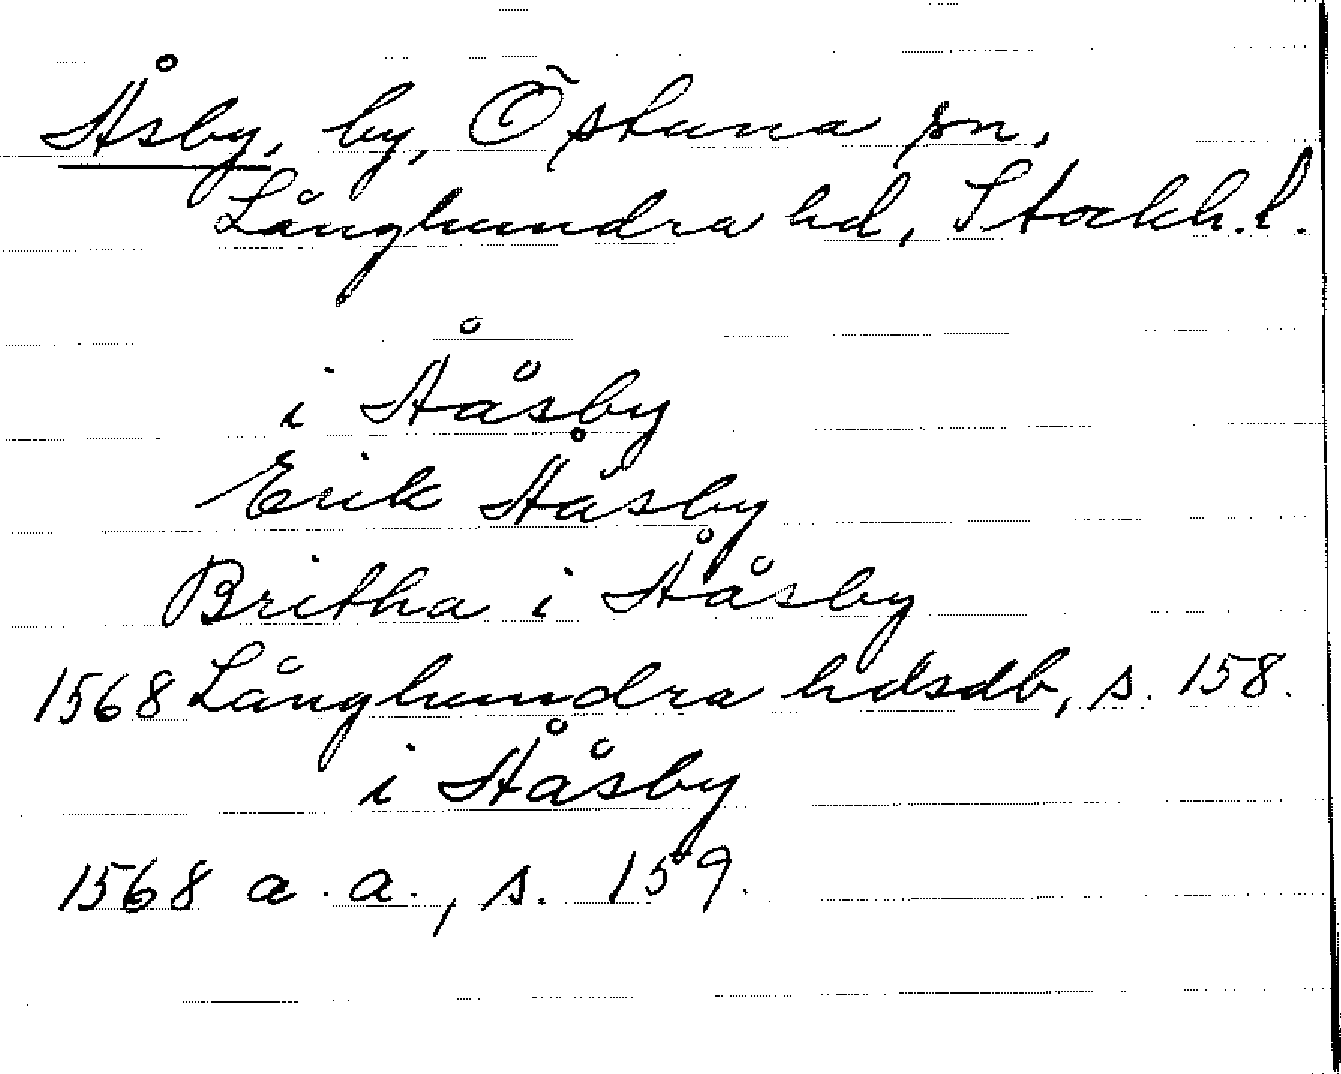 Åsby, by, Östuna sn,
Långhundra hd, Stockh. l.
i Ååsby
Erik Ååsby
Britha i Ååsby
1568 Långhundra hdsdb, s. 158.
i Ååsby
1568 a. a., s. 159.